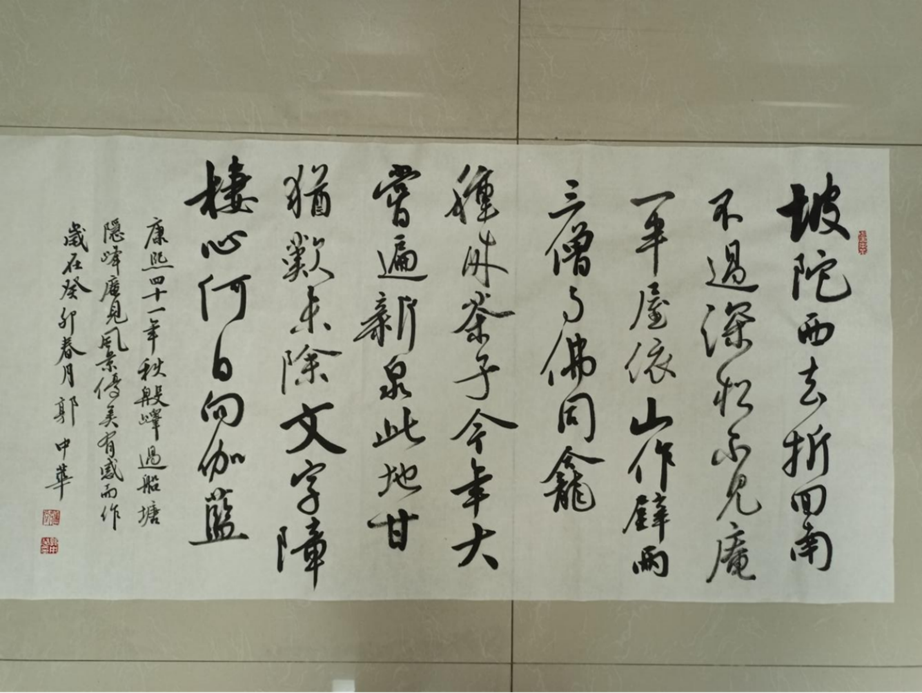 坡陀西去折回南
不過深松不見庵
一半屋依山作壁兩
三僧与佛同龕
種茶子今年大
嘗遍新泉此地甘
猶歎未除文字障
棲心何日向伽藍
康熙四十一年秋殷嶧過船塘
隐峰庵見风景優美有感而作
歲在癸卯春月郭中華